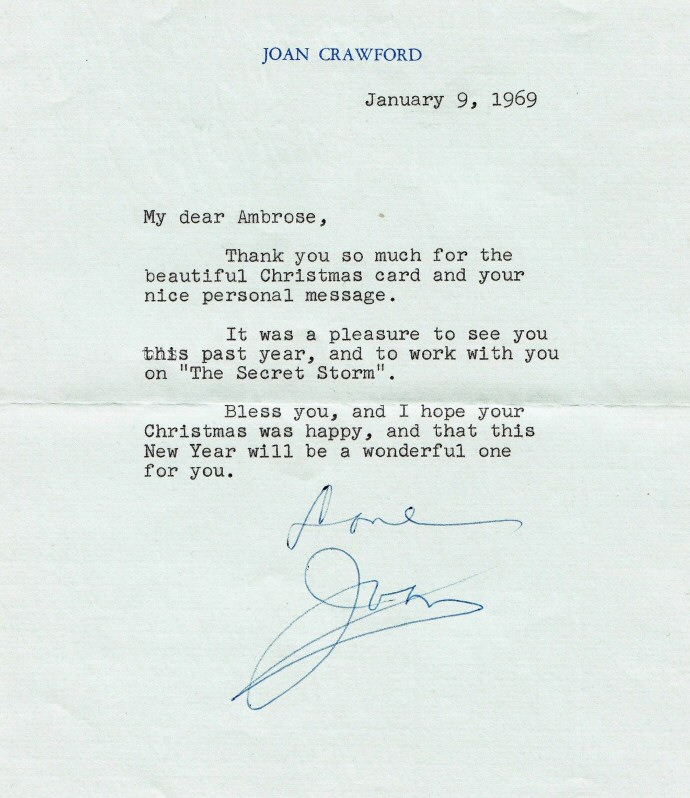 JOAN CRAWFORD
January 9, 1969
My dear Ambrose,
Thank you so much for the
beautiful Christmas card and your
nice personal message.
It was a pleasure to see you
this past year, and to work with you
on "The Secret Storm".
Bless you, and I hope your
Christmas was happy, and that this
New Year will be a wonderful one
for you.
Love
Joan